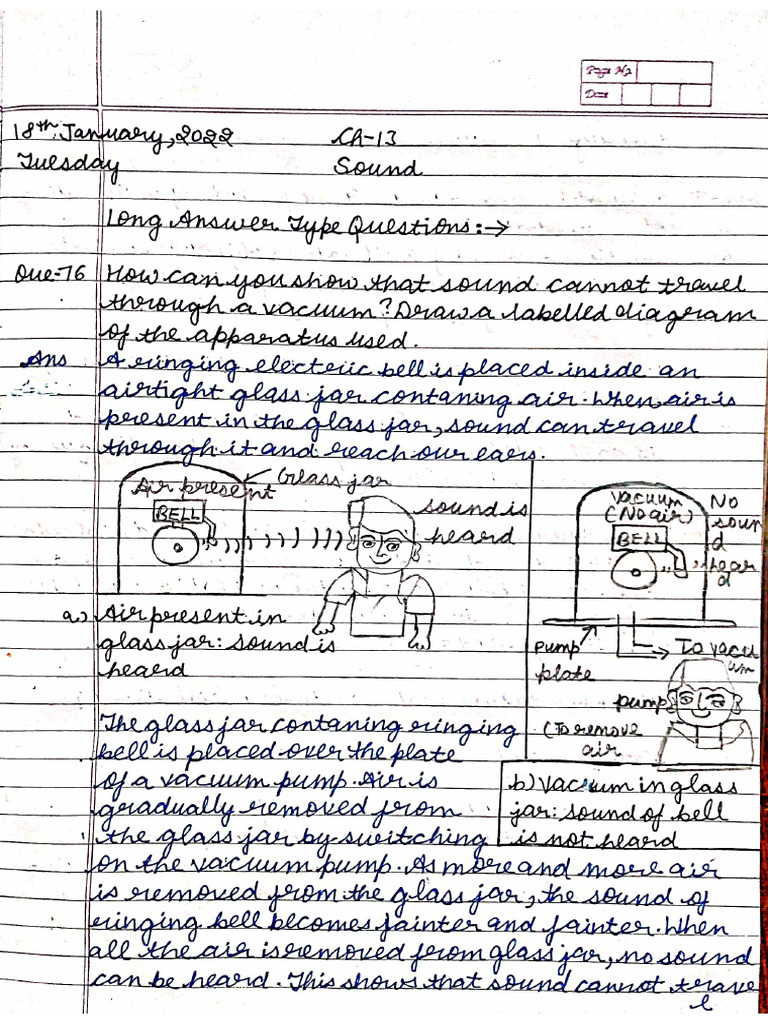 Page No
Date
18th January, 2022 Ch-13
Tuesday Sound
Long Answer Type Questions:→
Que-16 How can you show that sound cannot travel
through a vacuum? Draw a labelled diagram
of the apparatus used.
Ans A ringing electric bell is placed inside an
airtight glass jar contaning air. When air is
present in the glass jar, sound can travel
through it and reach our ears.
Air present
Glass jar
BELL
sound is
heard
a.) Air present in
glass jar: sound is
heard
Vacuum
(No air)
BELL
No
soun
d
hear
d
pump
plate
To vacu
um
pump
(To remove
air
b) Vacuum in glass
jar: sound of bell
is not heard
The glass jar contaning ringing
bell is placed over the plate
of a vacuum pump. Air is
gradually removed from
the glass jar by switching
on the vacuum pump. As more and more air
is removed from the glass jar, the sound of
ringing bell becomes fainter and fainter. When
all the air is removed from glass jar, no sound
can be heard. This shows that sound cannot trave
l